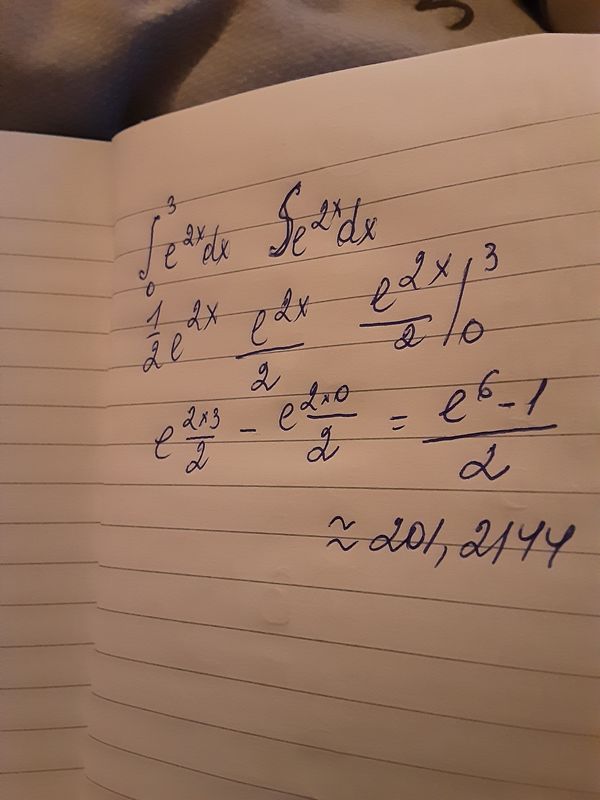 ∫₀³ e^{2x} dx ∫ e^{2x} dx
\frac{1}{2} e^{2x} \frac{e^{2x}}{2} \frac{e^{2x}}{2} |₀³
e^{\frac{2×3}{2}} - e^{\frac{2×0}{2}} = \frac{e^6-1}{2}
≈ 201,2144